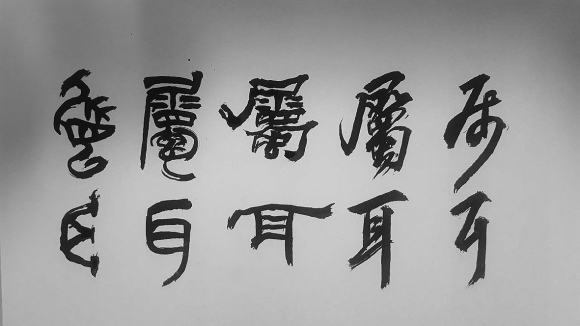 属耳
屬耳
屬耳
屬耳
屬耳